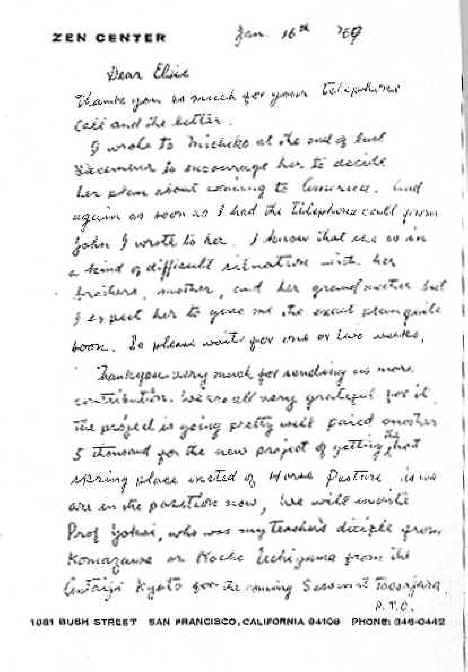 ZEN CENTER
Jan. 16th '69
Dear Elsie
Thank you so much for your telephone
call and the letter.
I wrote to Michiko at the end of last
December to encourage her to decide
her plan about coming to America. And
again as soon as I had the telephone call from
John I wrote to her. I know that she is in
a kind of difficult situation with her
brothers, mother, and her grandmother but
I expect her to give me the exact plan quite
soon. So please wait for one or two weeks.
Thank you very much for sending us more
contribution. We are all very grateful for it.
The project is going pretty well paid another
5 thousand for the new project of getting the hot
spring place instead of Horse Pasture. As we
are in the position now, we will invite
Prof. Yokoi, who was my teacher's disciple from
Komazawa or Kosho Uchiyama from the
Antaiji Kyoto for the coming Season at Tassajara.
P.T.O.
1881 BUSH STREET SAN FRANCISCO, CALIFORNIA 94109 PHONE: 346-0442